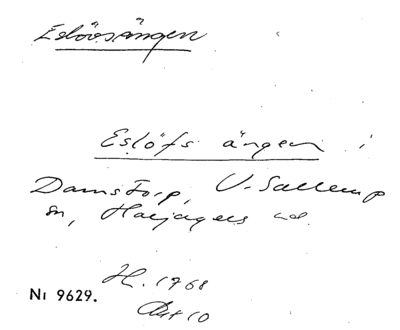 Eslövsängen
Eslöfs ängen i
Damstorp, V. Sallerup
sn, Harjagers hd.
H. 1768
Akt 10
Nı 9629.